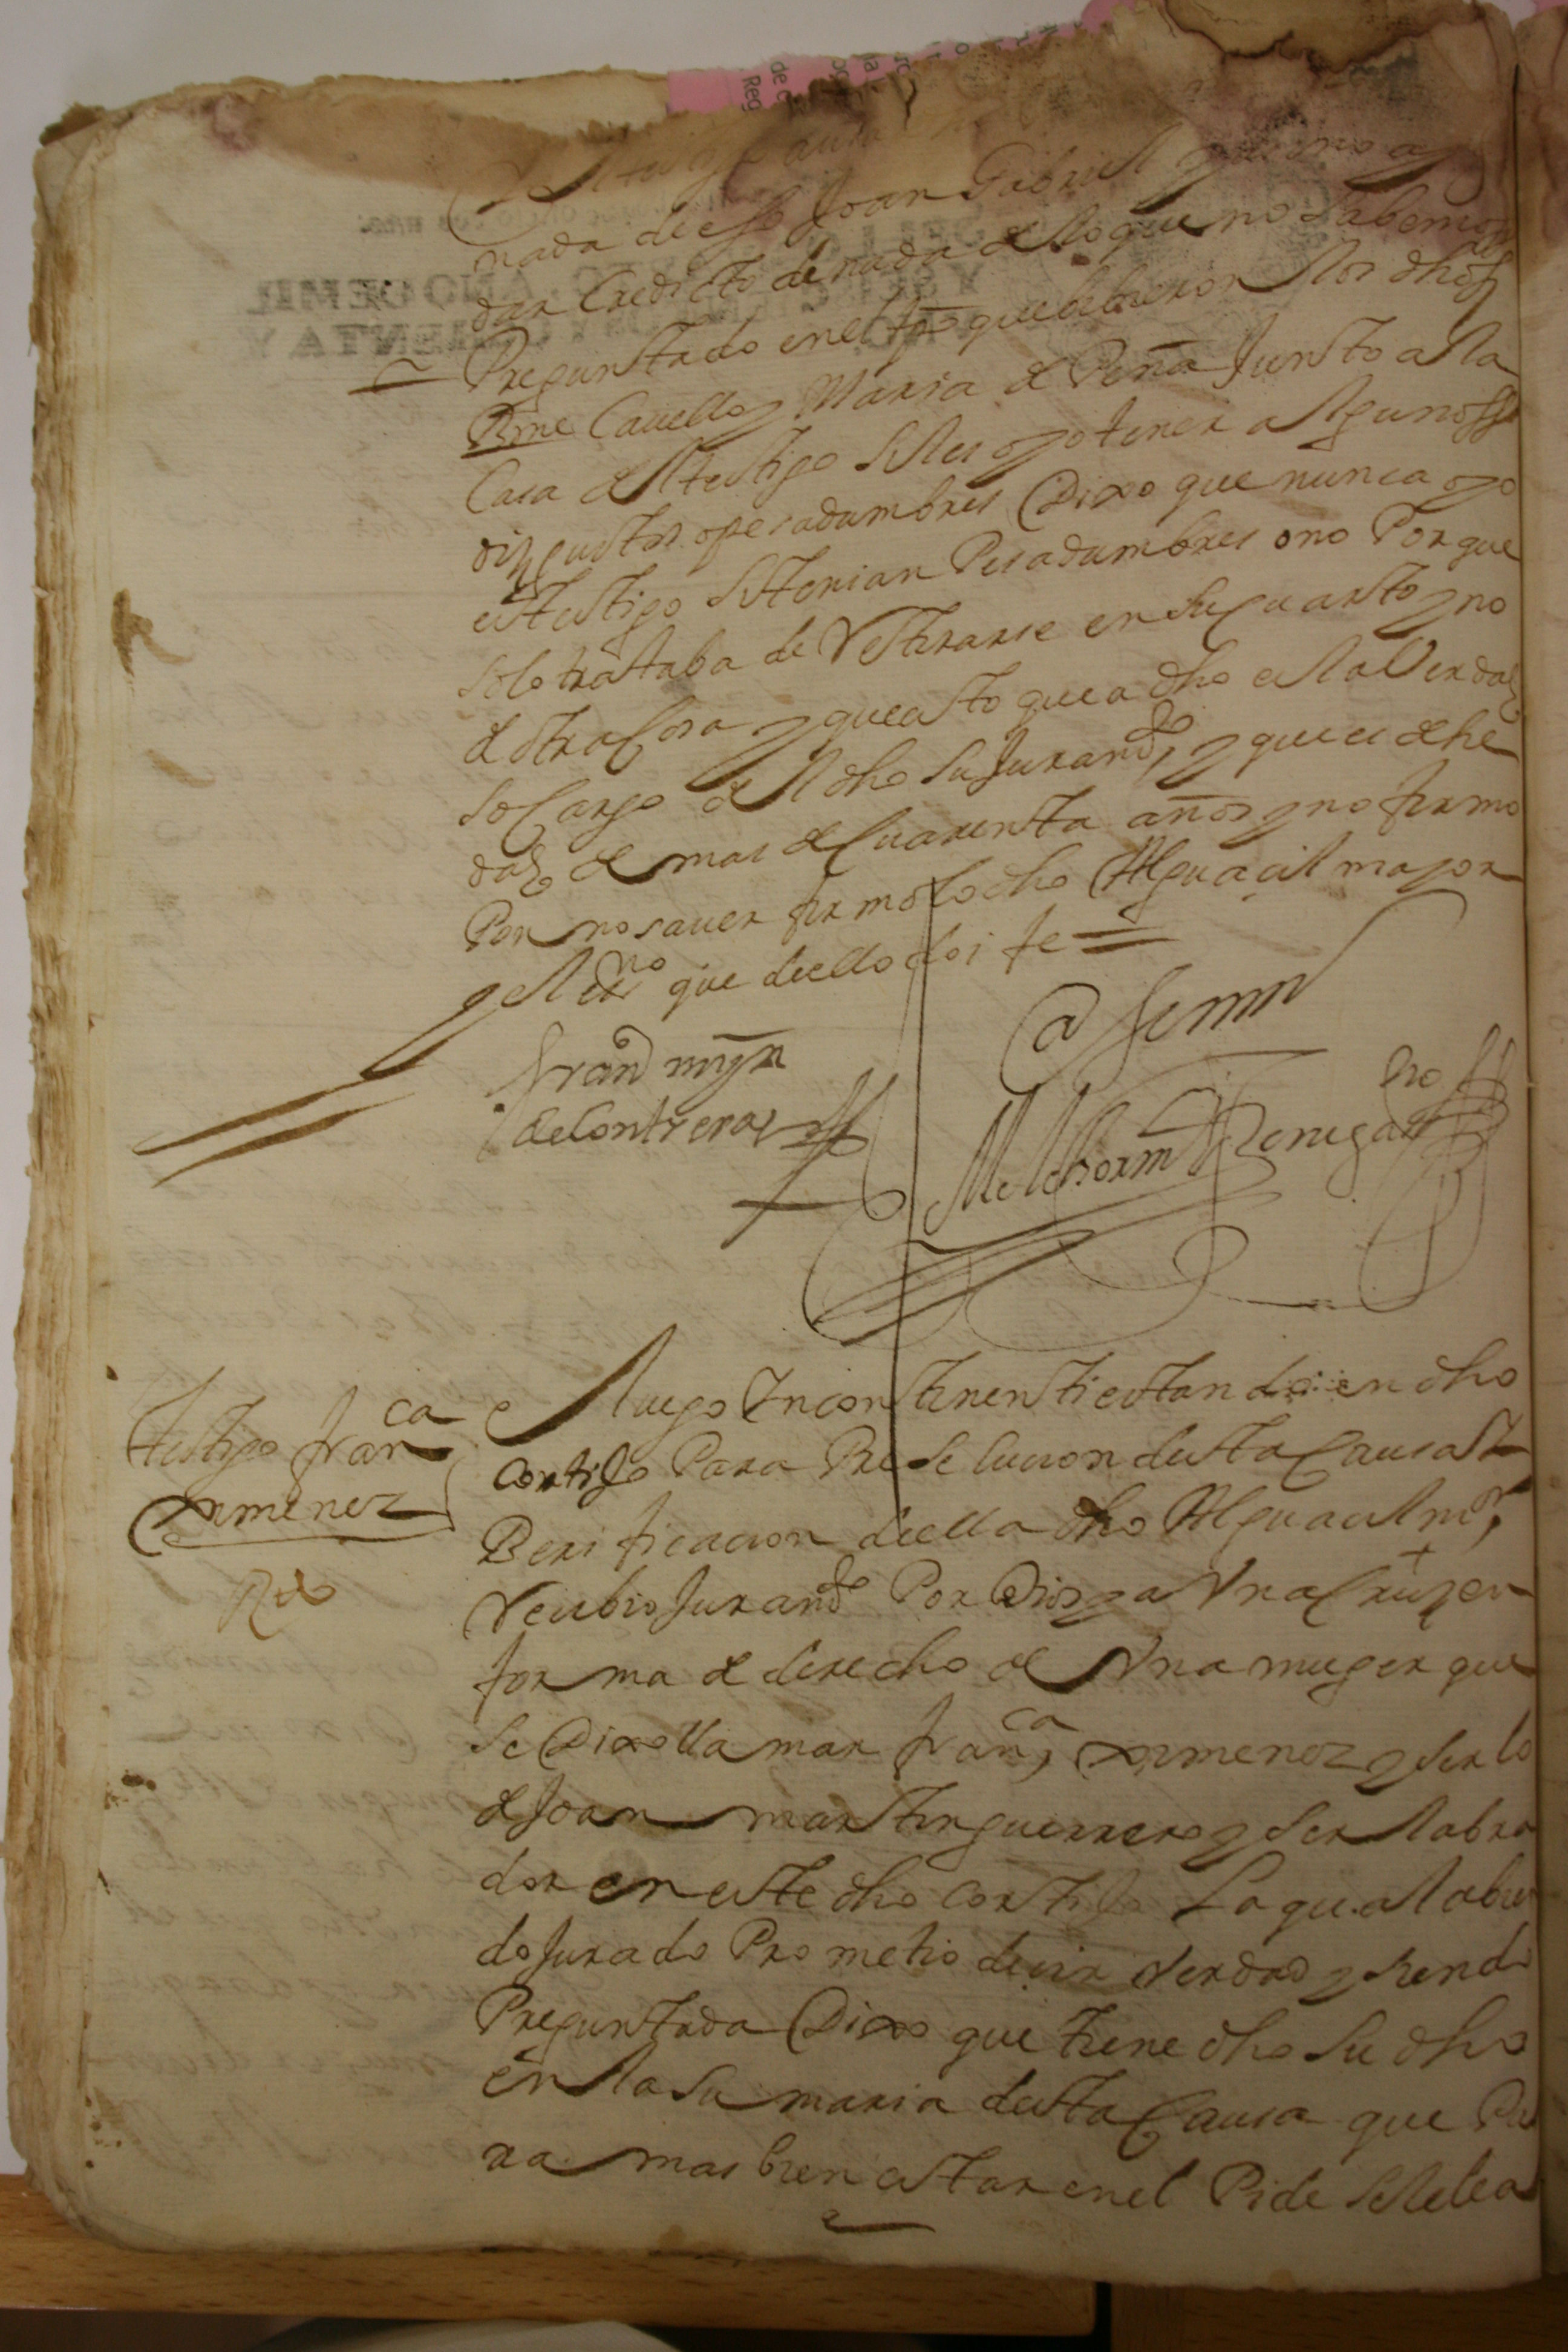 nada de esso Joan Gabriel y
dar Credicto de nada de lo que no sabemos
Preguntado en el tpo que bibieron los dhos
Bme Cauello y Maria de Peña Junto a la
Casa del testigo si les oyo tener algunos
dizgustos o pesadumbres Dixo que nunca oyo
este testigo si tenian Pesadumbres o no Porque
solo trataba de Retirarse en su quarto y no
de otra Cosa y que esto que a dho es la Verdad
so Cargo del dho su Juramdo, y que es de he
dad de mas de Cuarenta años y no firmo
Por no sauer firmolo dho Alguacil mayor
y el esno que de ello doi fe =
Franco mrn
de Contreras
Ante mi
Melchor Benegas
Sno
Testigo franca
Ximenez
Rdo
e luego Yncontinenti estando en dho
Cortijo Para Prosecucion desta Causa y
Berificacion de ella dho Alguacil mor,
Recibio Juramdo Por Dios y a Una Cruz + en
forma de derecho de Una muger que
se Dixo llamar franca, Ximenez y serlo
de Joan martin guerrero y ser labra
dor en este dho Cortijo La qual abien
do Jurado Prometio decir Verdad y siendo
Preguntada Dixo que tiene dho su dho
en la sumaria desta Causa que Pa
ra mas bien estar en el Pide se le lea